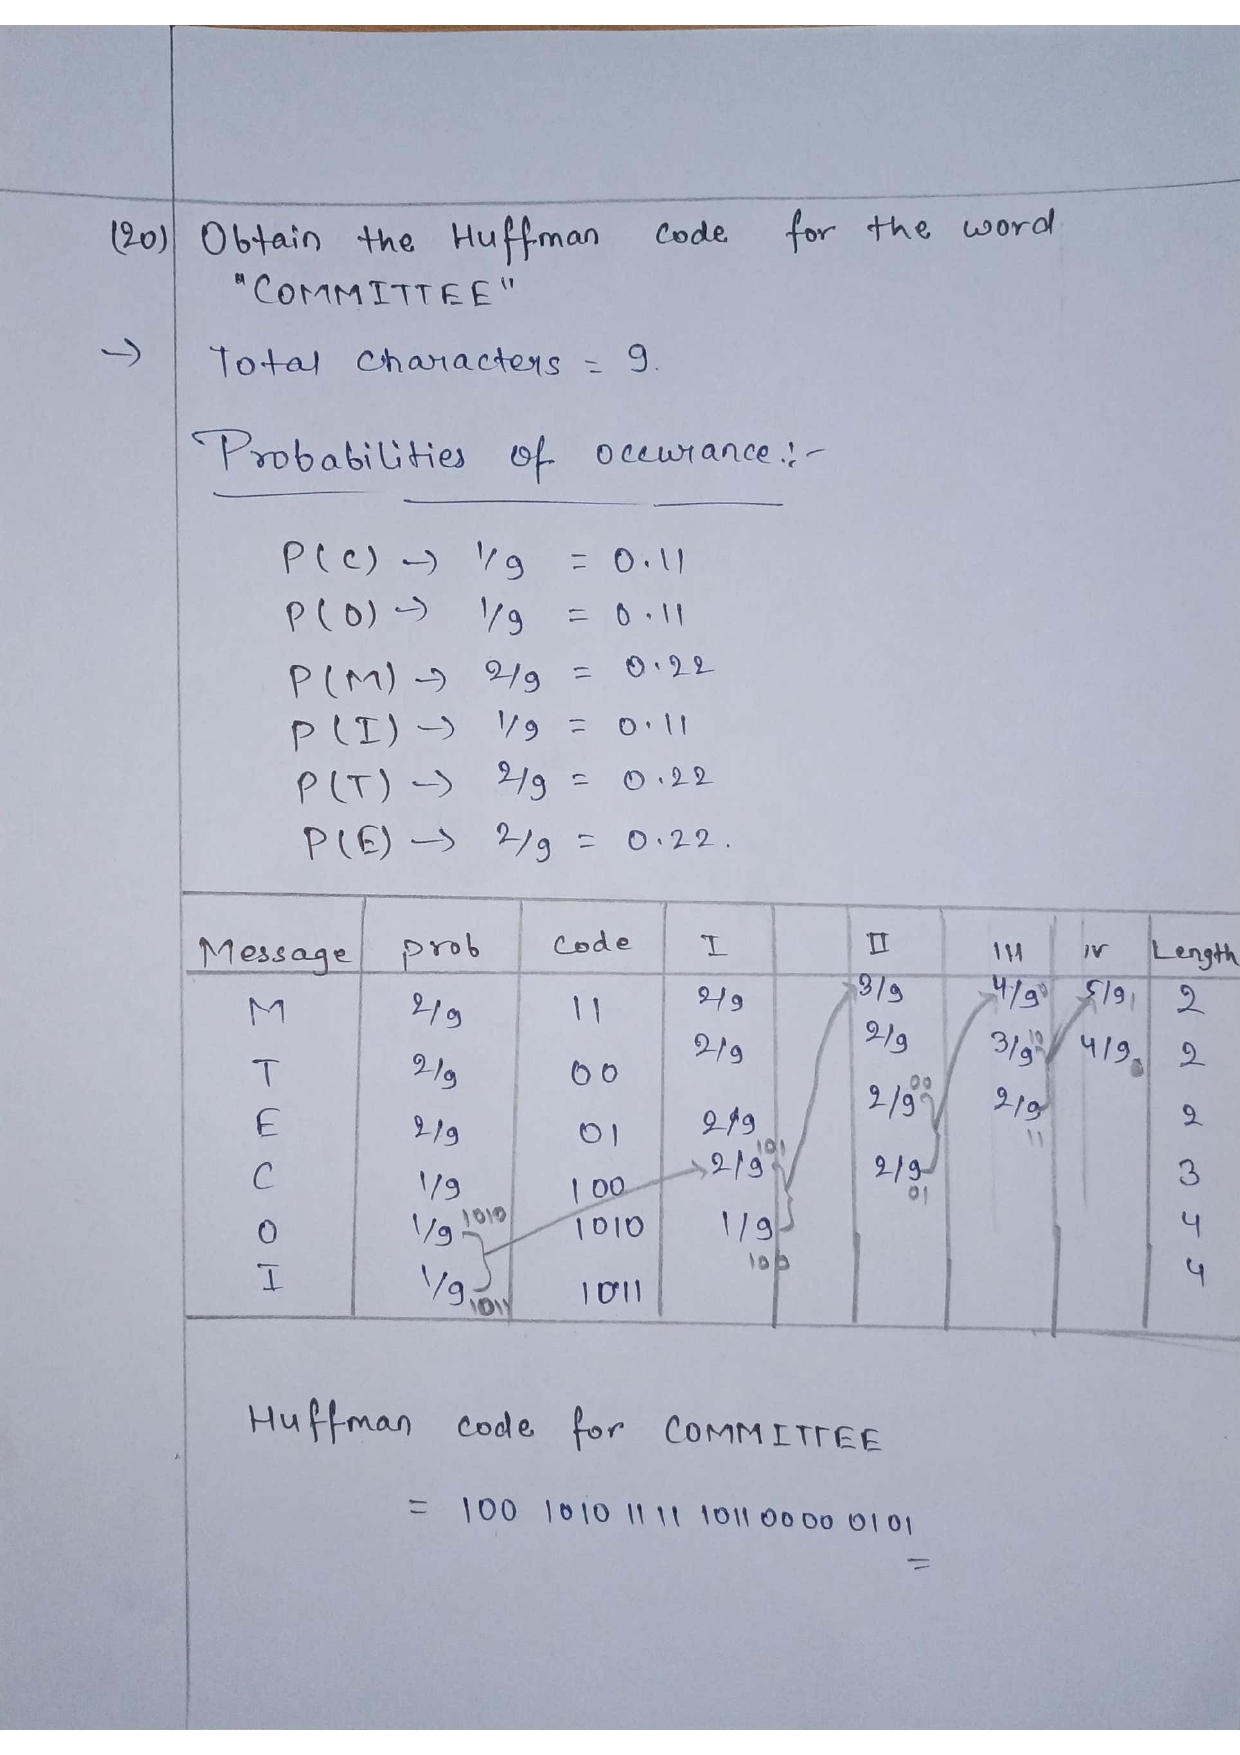 (20) Obtain the Huffman code for the word
"COMMITTEE"
→ Total characters = 9.
Probabilities of occurance :-
P(C) → 1/9 = 0.11
P(O) → 1/9 = 0.11
P(M) → 2/9 = 0.22
P(I) → 1/9 = 0.11
P(T) → 2/9 = 0.22
P(E) → 2/9 = 0.22.
Message prob code I II III IV Length
M 2/9 11 2/9 3/9 4/9 0 5/9 1 2
T 2/9 00 2/9 2/9 3/9 10 4/9 0 2
E 2/9 01 2/9 2/9 00 2/9 11 2
C 1/9 100 2/9 101 2/9 01 3
O 1/9 1010 1010 1/9 100 4
I 1/9 1011 1011 4
Huffman code for COMMITTEE
= 100 1010 11 11 1011 00 00 01 01